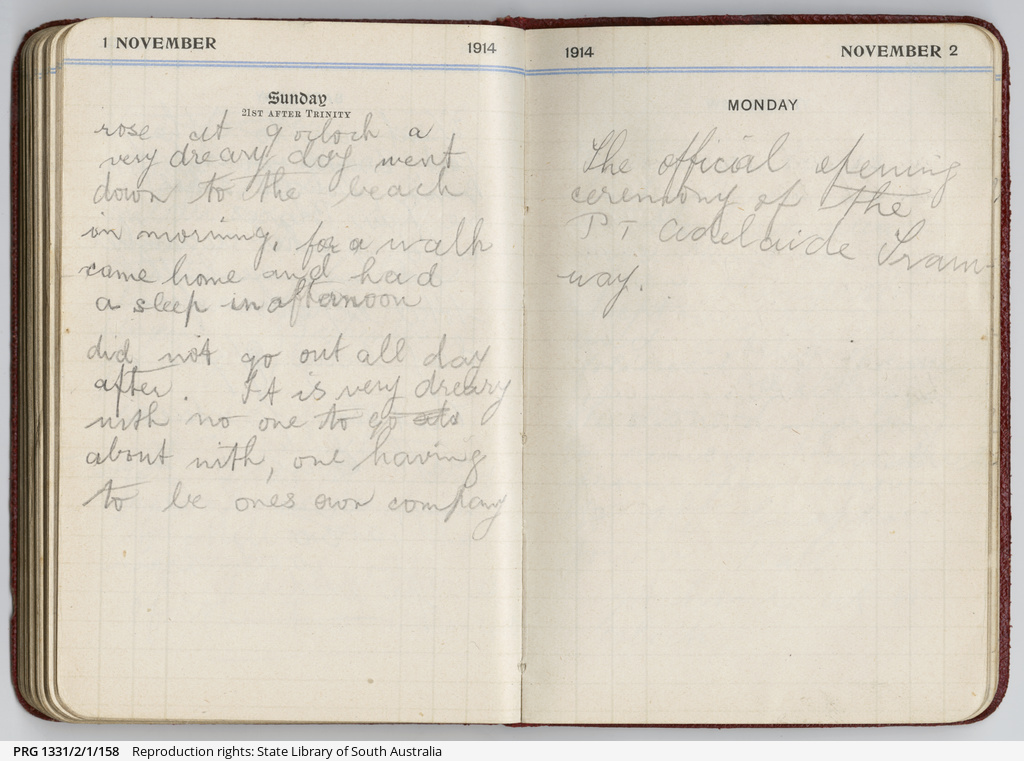 1 NOVEMBER 1914
Sunday
21ST AFTER TRINITY
rose at 9 oclock a
very dreary day went
down to the beach
in morning, for a walk
came home and had
a sleep in afternoon
did not go out all day
after. It is very dreary
with no one to go
about with, one having
to be ones own company
1914 NOVEMBER 2
MONDAY
The official opening
ceremony of the
PT Adelaide Tram-
way.
PRG 1331/2/1/158 Reproduction rights: State Library of South Australia